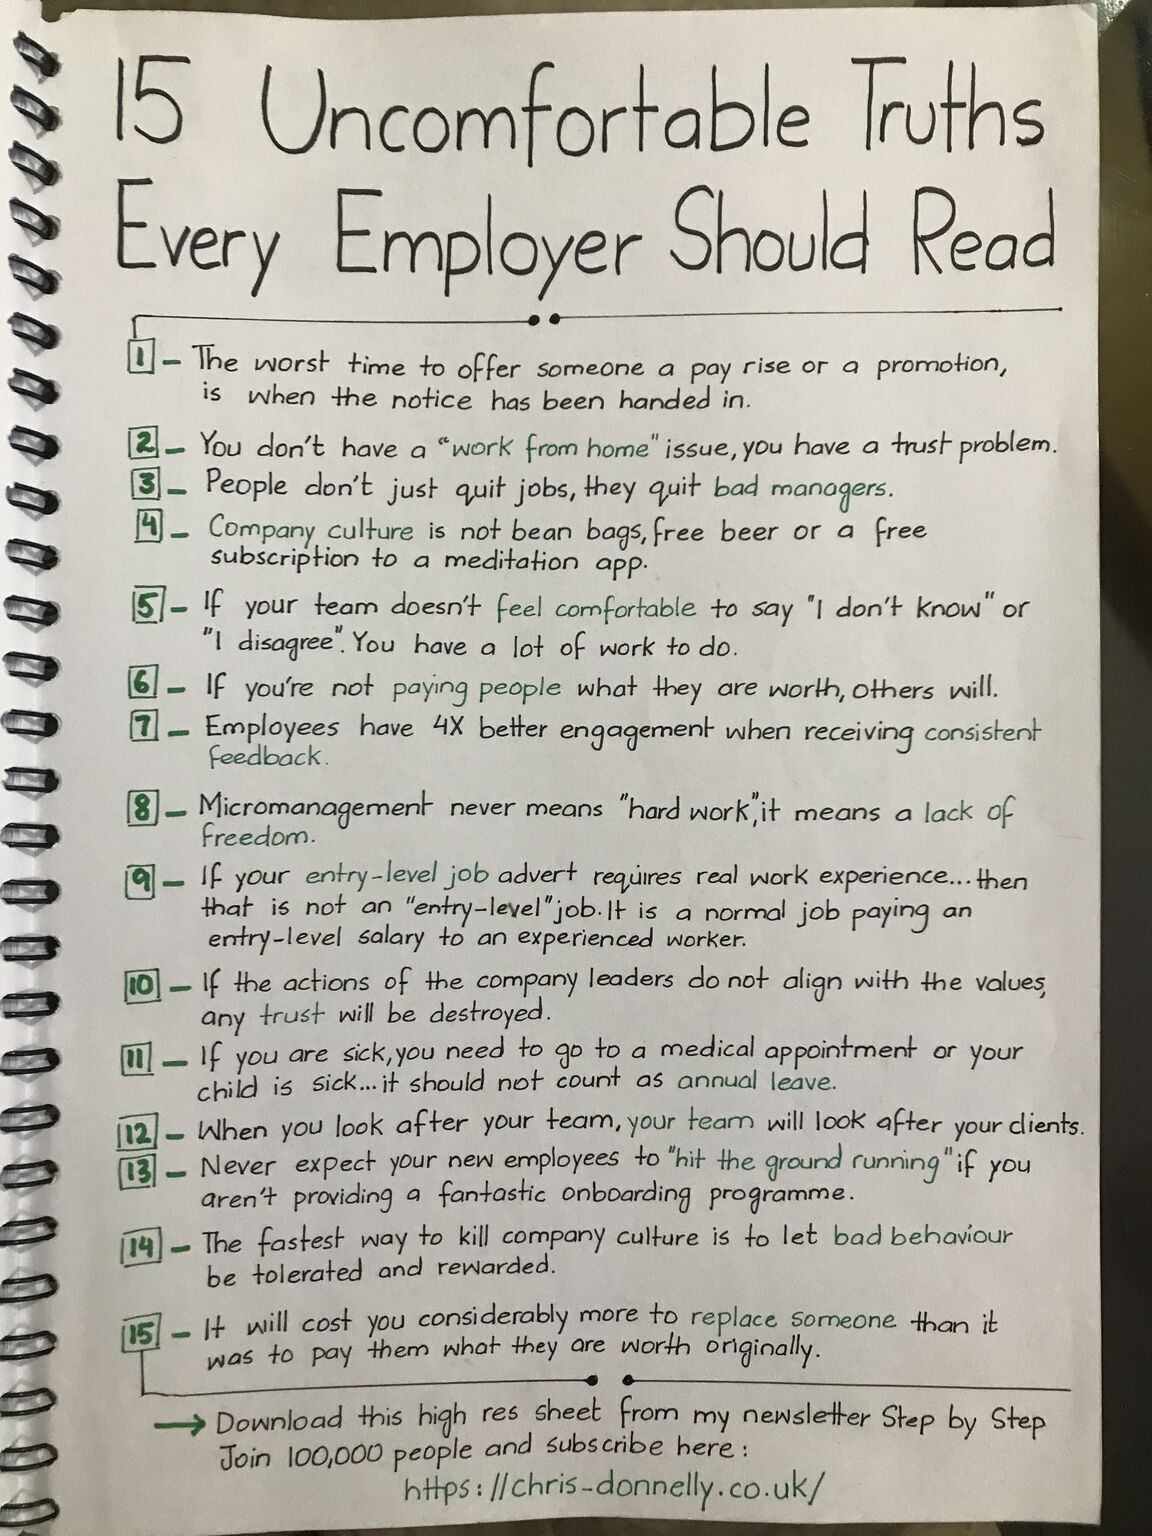 15 Uncomfortable Truths
Every Employer Should Read
1 - The worst time to offer someone a pay rise or a promotion,
is when the notice has been handed in.
2 - You don't have a "work from home" issue, you have a trust problem.
3 - People don't just quit jobs, they quit bad managers.
4 - Company culture is not bean bags, free beer or a free
subscription to a meditation app.
5 - If your team doesn't feel comfortable to say "I don't know" or
"I disagree". You have a lot of work to do.
6 - If you're not paying people what they are worth, others will.
7 - Employees have 4X better engagement when receiving consistent
feedback.
8 - Micromanagement never means "hard work", it means a lack of
freedom.
9 - If your entry-level job advert requires real work experience... then
that is not an "entry-level" job. It is a normal job paying an
entry-level salary to an experienced worker.
10 - If the actions of the company leaders do not align with the values,
any trust will be destroyed.
11 - If you are sick, you need to go to a medical appointment or your
child is sick... it should not count as annual leave.
12 - When you look after your team, your team will look after your clients.
13 - Never expect your new employees to "hit the ground running" if you
aren't providing a fantastic onboarding programme.
14 - The fastest way to kill company culture is to let bad behaviour
be tolerated and rewarded.
15 - It will cost you considerably more to replace someone than it
was to pay them what they are worth originally.
→ Download this high res sheet from my newsletter Step by Step
Join 100,000 people and subscribe here:
https://chris-donnelly.co.uk/